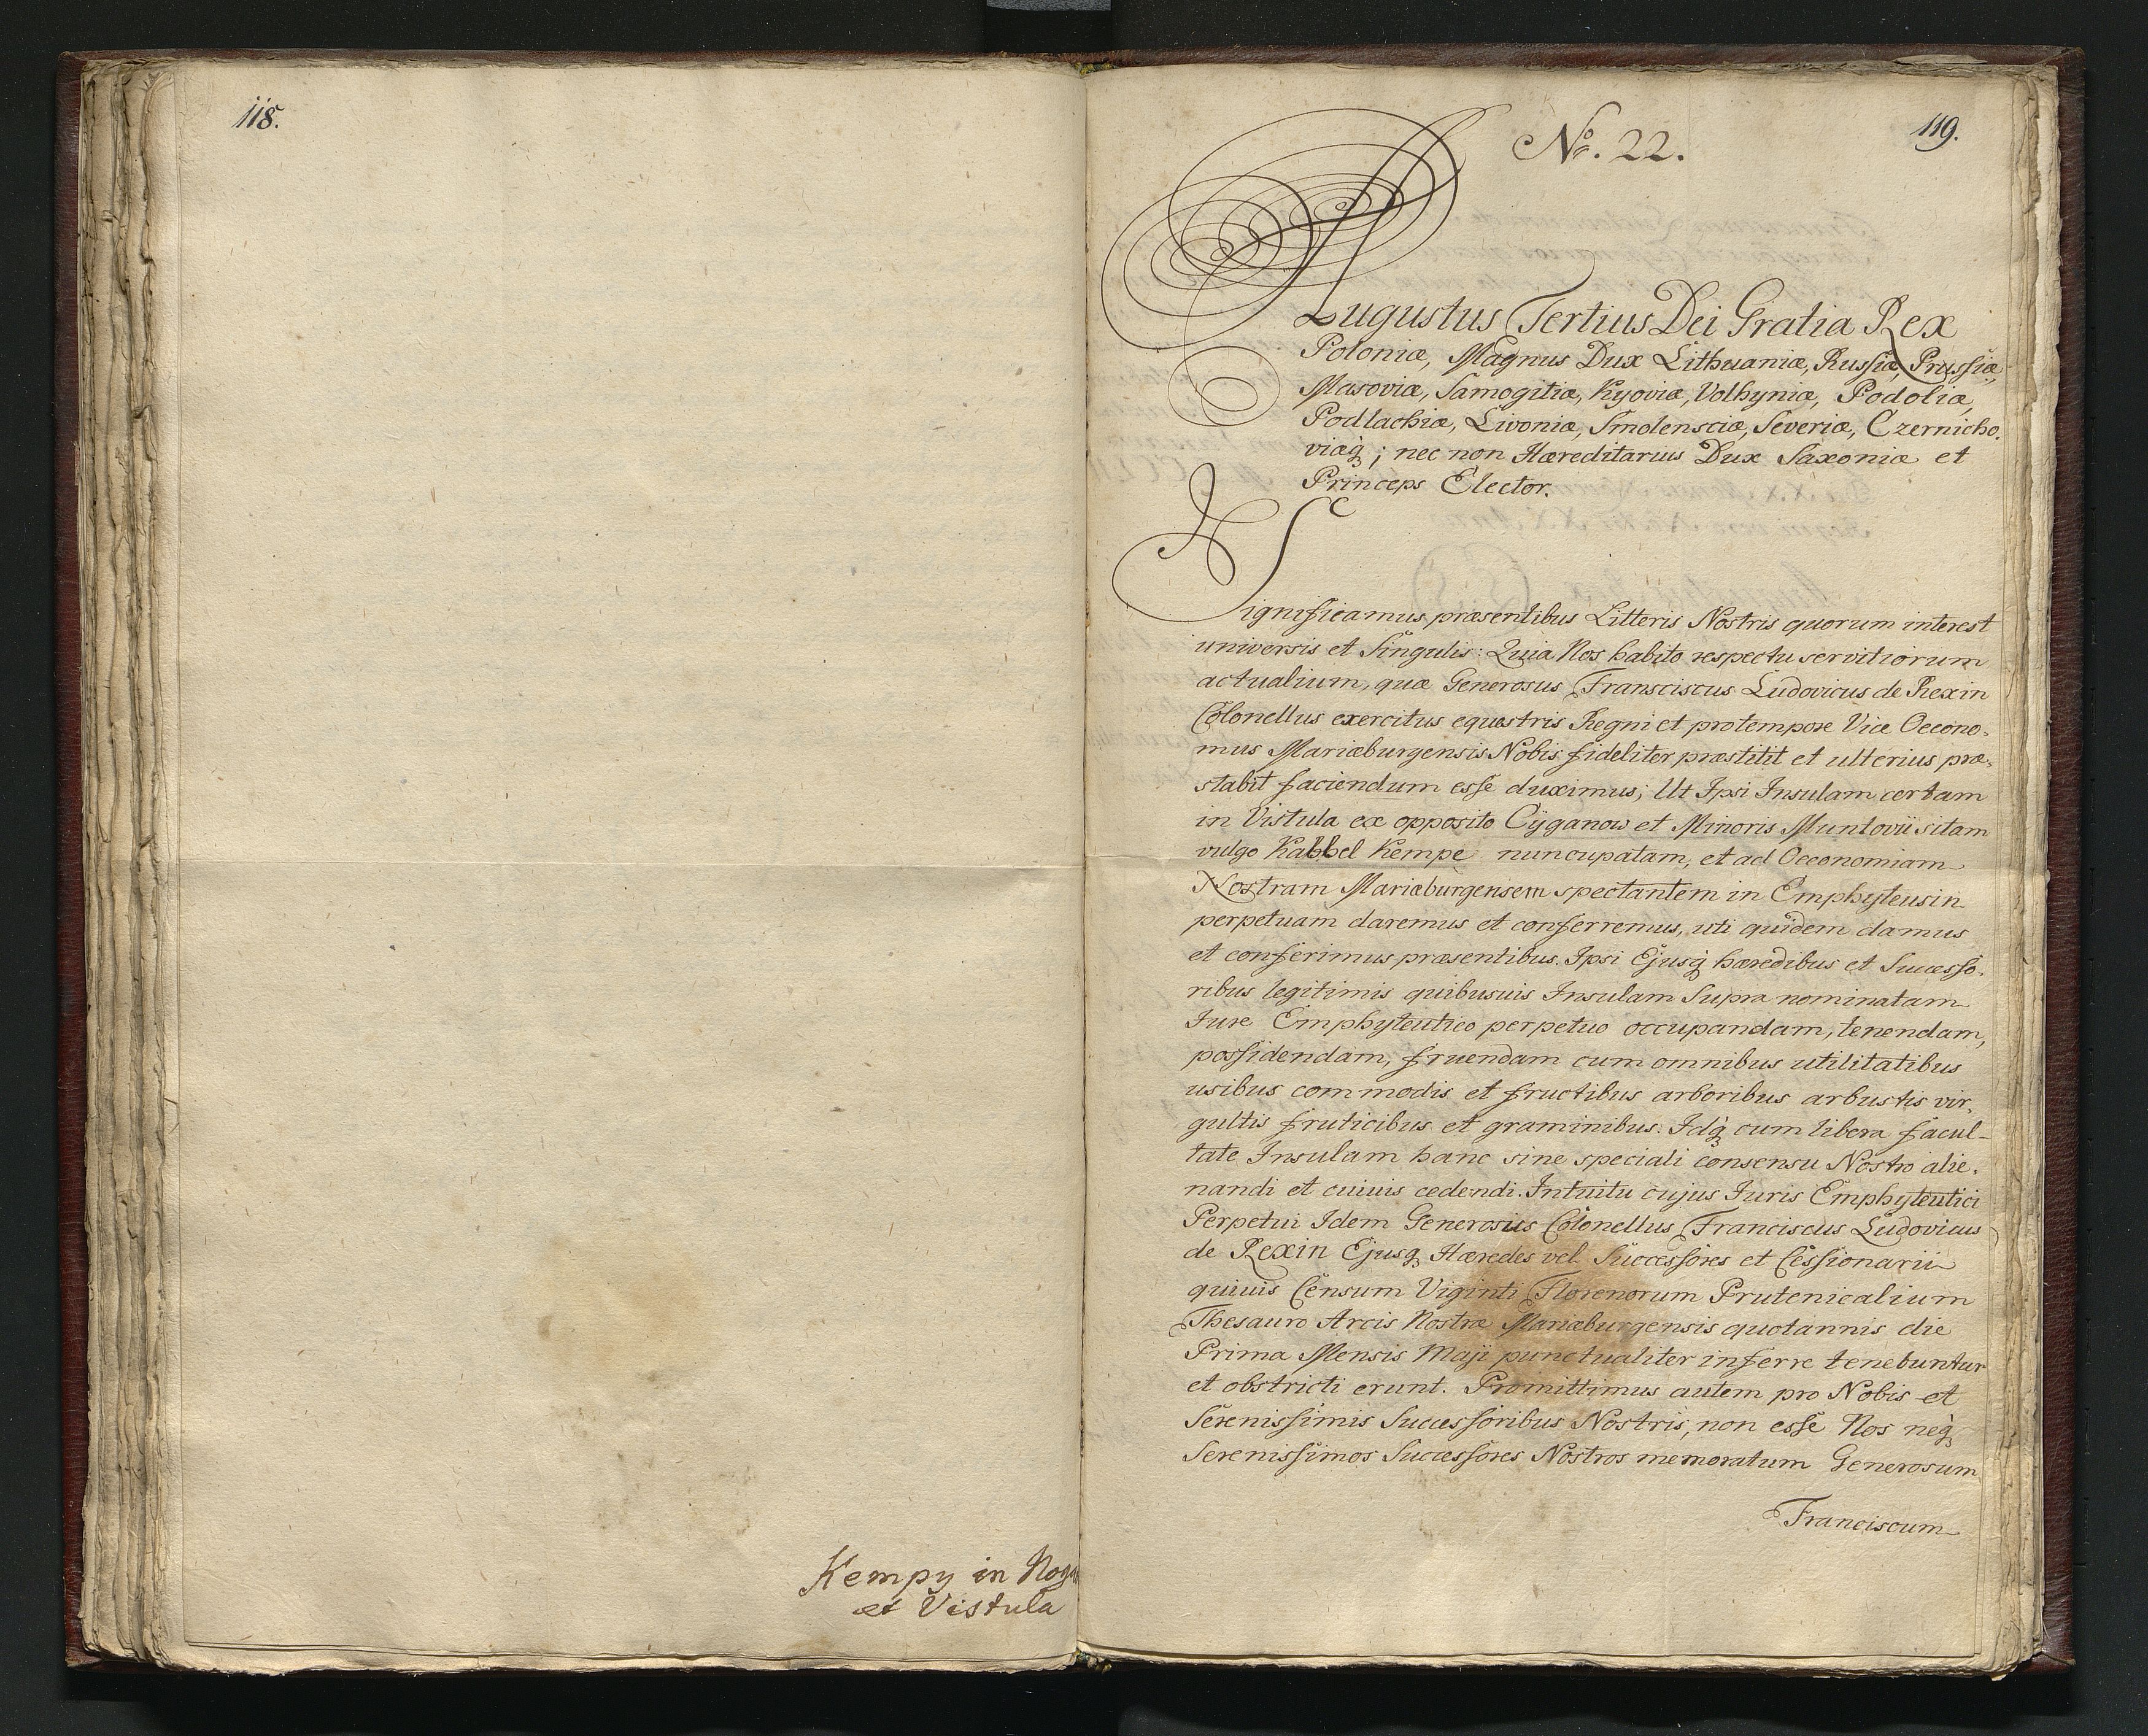 118.
Kempy in Nog
et Vistula
119.
No. 22.
Augustus Tertius Dei Gratia Rex
Poloniæ, Magnus Dux Lithuaniæ, Russiæ, Prussiæ,
Masoviæ, Samogitiæ, Kyoviæ, Volhyniæ, Podoliæ,
Podlachiæ, Livoniæ, Smolensciæ, Severiæ, Czernicho-
viæq; nec non Hæreditarius Dux Saxoniæ et
Princeps Elector.
Significamus præsentibus Litteris Nostris quorum interest
universis et Singulis: Quia Nos habito respectu servitiorum
actualium, quæ Generosus Fransciscus Ludovicus de Rexin
Colonellus exercitus equestris Regni et pro tempore Vice Oecono-
mus Mariæburgensis Nobis fideliter præstitit et ulterius præ-
stabit faciendum esse duximus; Ut Ipsi Insulam certam
in Vistula ex opposito Cyganow et Minoris Muntovii sitam
vulgo Kabbel Kempe nuncupatam, et ad Oeconomiam
Nostram Mariæburgensem spectantem in Emphyteusin
perpetuam daremus et conferremus, uti quidem damus
et conferimus præsentibus. Ipsi Ejusq hæredibus et Successo-
ribus legitimis quibusuis Insulam Supra nominatam
Jure Emphyteutico perpetuo occupandam, tenendam,
possidendam, fruendam cum omnibus utilitatibus
usibus commodis et fructibus arboribus arbustis vir-
gultis fruticibus et graminibus. Idq cum libera facul-
tate Insulam hanc sine speciali consensu Nostro alie-
nandi et cuiuis cedendi. Intuitu cujus Juris Emphyteutici
Perpetui Idem Generosus Colonellus Franciscus Ludovicus
de Rexin Ejusq Hæredes vel Successores et Cessionarii
quiuis Censum Viginti Florenorum Prutenicalium
Thesauro Arcis Nostræ Mariæburgensis quotannis die
Prima Mensis Maji punctualiter inferre tenebuntur
et obstricti erunt. Promittimus autem pro Nobis et
Serenissimis Successoribus Nostris, non esse Nos neq
Serenissimos Successores Nostros memoratum Generosum
Franciscum